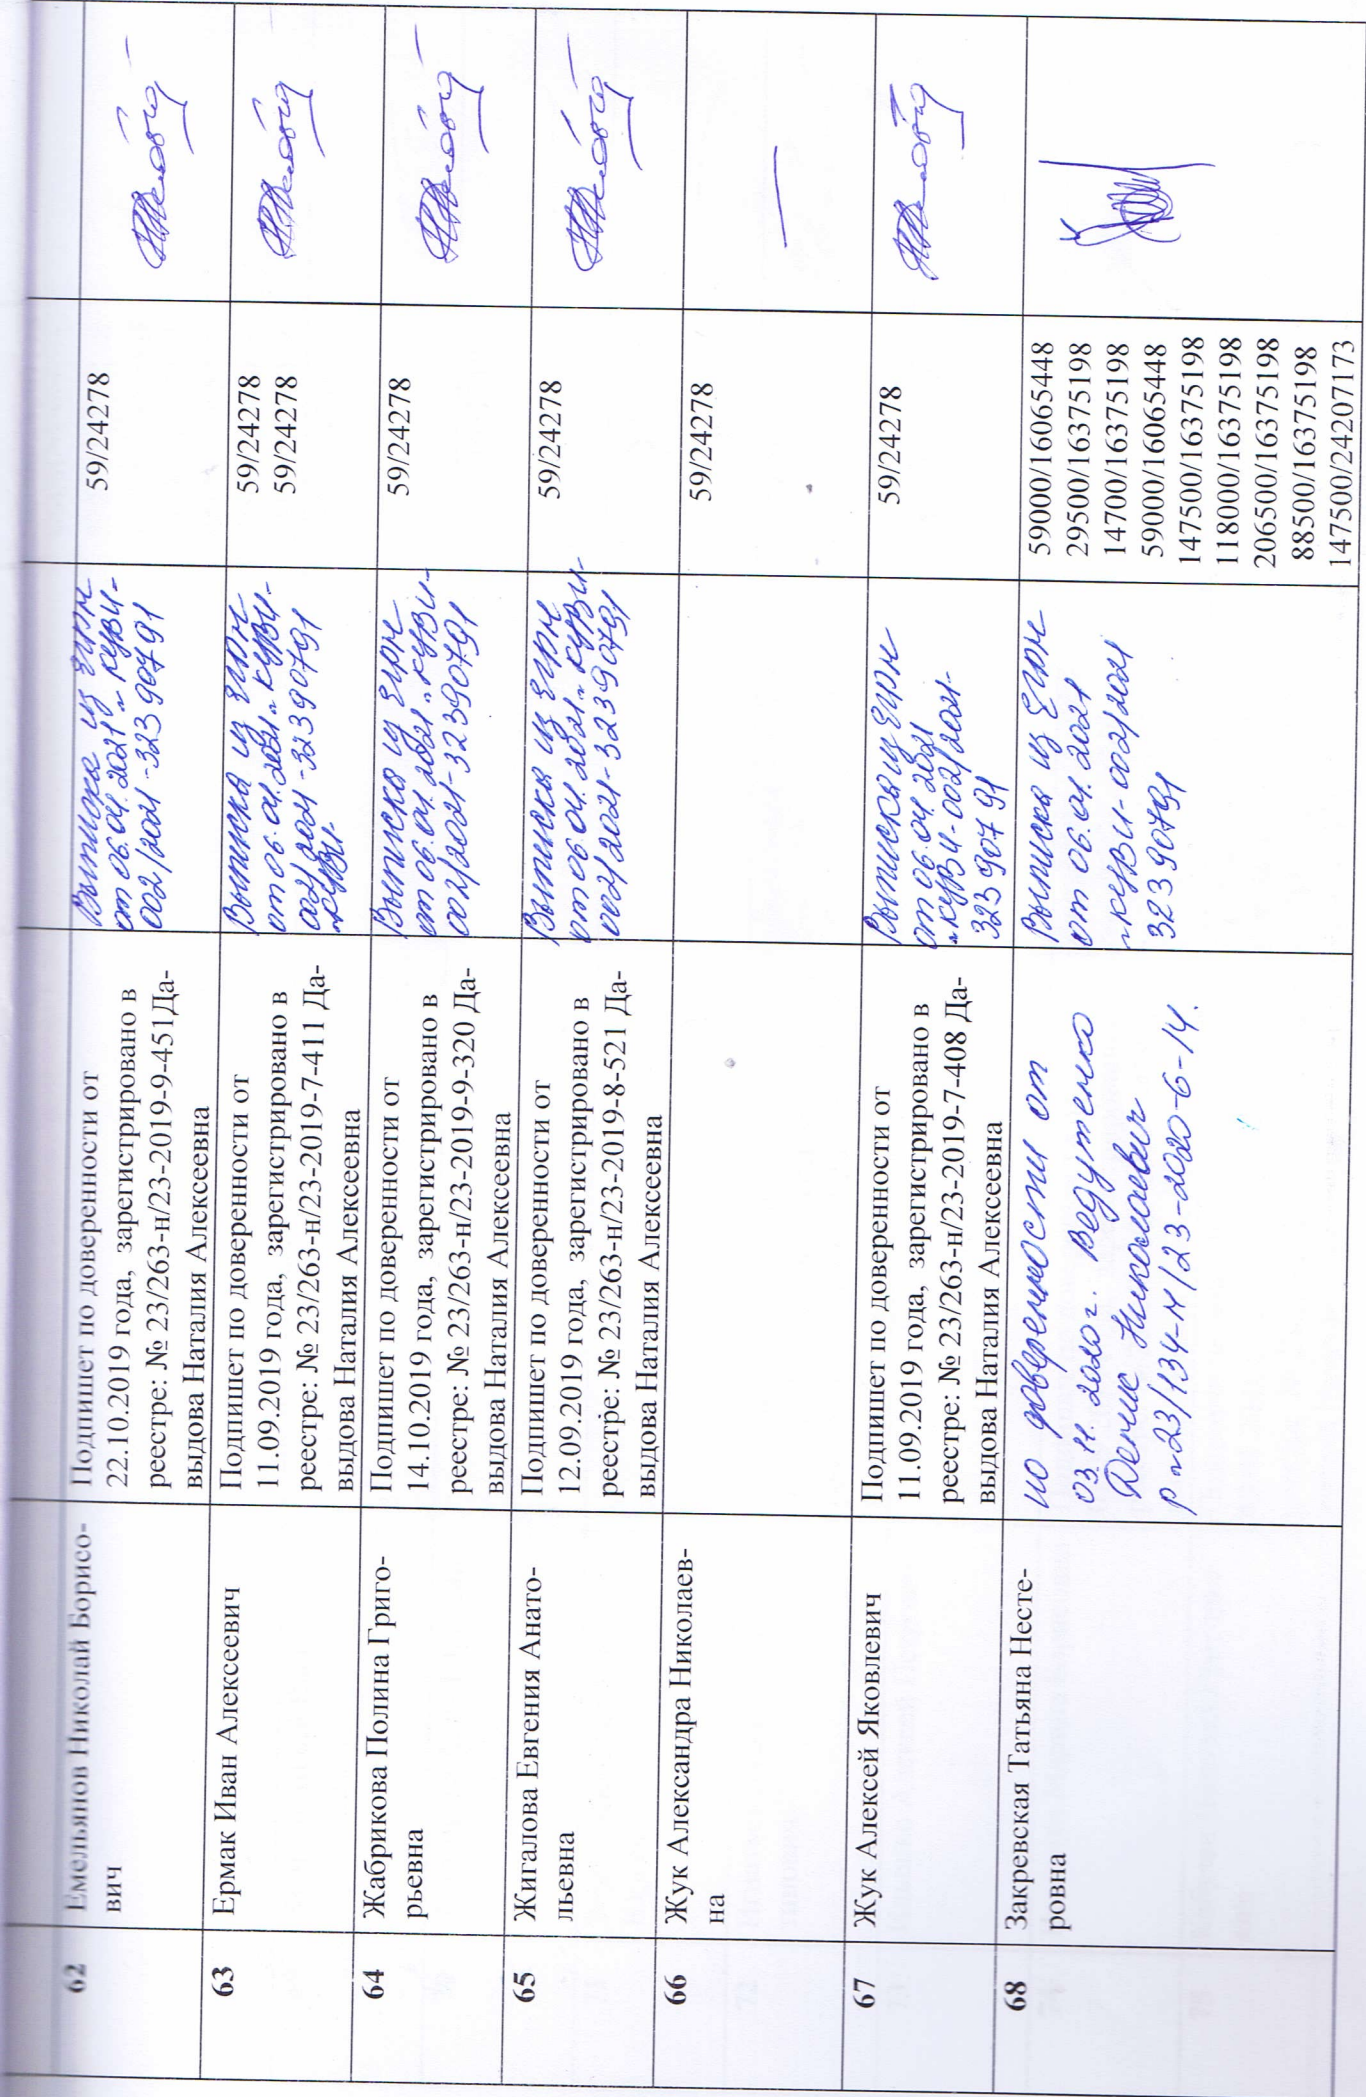 62
Емельянов Николай Борисо-
вич
Подпишет по доверенности от
22.10.2019 года, зарегистрировано в
реестре: № 23/263-н/23-2019-9-451Да-
выдова Наталия Алексеевна
Выписка из ЕГРН
от 06.04.2021 № КУВИ-
002/2021-32390791
59/24278
63
Ермак Иван Алексеевич
Подпишет по доверенности от
11.09.2019 года, зарегистрировано в
реестре: № 23/263-н/23-2019-7-411 Да-
выдова Наталия Алексеевна
Выписка из ЕГРН
от 06.04.2021 № КУВИ-
002/2021-32390791
КУВИ-
59/24278
59/24278
64
Жабрикова Полина Григо-
рьевна
Подпишет по доверенности от
14.10.2019 года, зарегистрировано в
реестре: № 23/263-н/23-2019-9-320 Да-
выдова Наталия Алексеевна
Выписка из ЕГРН
от 06.04.2021 № КУВИ-
002/2021-32390791
59/24278
65
Жигалова Евгения Анато-
льевна
Подпишет по доверенности от
12.09.2019 года, зарегистрировано в
реестре: № 23/263-н/23-2019-8-521 Да-
выдова Наталия Алексеевна
Выписка из ЕГРН
от 06.04.2021 № КУВИ-
002/2021-32390791
59/24278
66
Жук Александра Николаев-
на
59/24278
—
67
Жук Алексей Яковлевич
Подпишет по доверенности от
11.09.2019 года, зарегистрировано в
реестре: № 23/263-н/23-2019-7-408 Да-
выдова Наталия Алексеевна
Выписка из ЕГРН
от 06.04.2021
№ КУВИ-002/2021-
32390791
59/24278
68
Закревская Татьяна Несте-
ровна
по доверенности от
03.11.2020г. Ведутенко
Денис Николаевич
р №23/134-н/23-2020-6-14.
Выписка из ЕГРН
от 06.04.2021
№ КУВИ-002/2021
32390791
59000/16065448
29500/16375198
14700/16375198
59000/16065448
147500/16375198
118000/16375198
206500/16375198
88500/16375198
147500/24207173